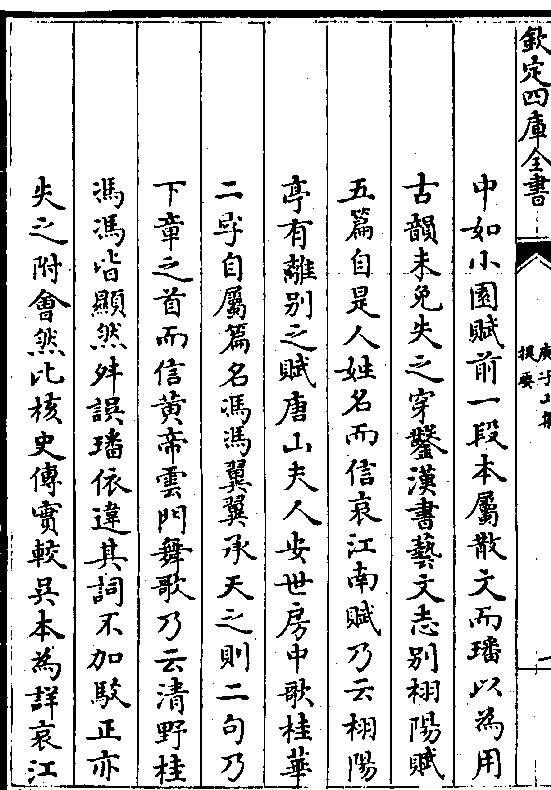 欽定四庫全書
庾子山集
提要
一
中如小園賦前一段本屬散文而璠以為用
古韻未免失之穿鑿漢書藝文志别栩陽賦
五篇自是人姓名而信哀江南賦乃云栩陽
亭有離别之賦唐山夫人安世房中歌桂華
二字自屬篇名馮馮翼翼承天之則二句乃
下章之首而信黄帝雲門舞歌乃云清野桂
馮馮皆顯然舛誤璠依違其詞不加駁正亦
失之附會然比核史傳實較吳本為詳哀江